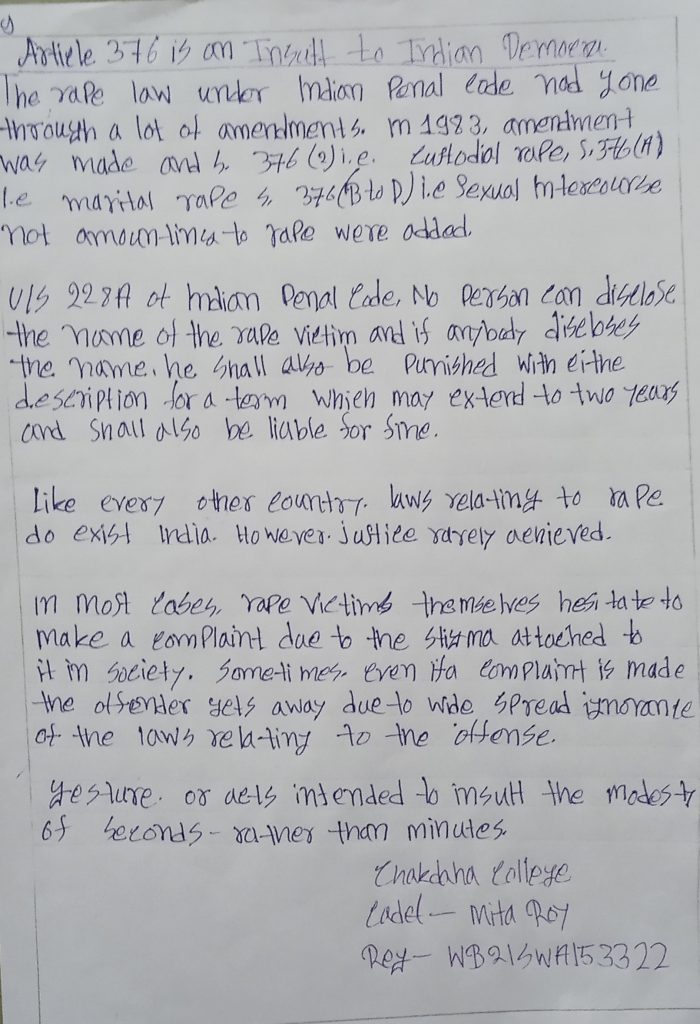 Article 376 is an Insult to Indian Democra
The rape law under Indian Penal Code had gone
through a lot of amendments. in 1983, amendment
was made and S. 376 (2) i.e. Custodial rape, S. 376 (A)
i.e marital rape S. 376 (B to D) i.e Sexual Intercourse
not amounting to rape were added.
U/S 228A of Indian Penal Code, No person can disclose
the name of the rape victim and if anybody discloses
the name, he shall also be punished with eithe
description for a term which may extend to two years
and shall also be liable for fine.
Like every other country. laws relating to rape
do exist India. However. justice rarely achieved.
in most cases, rape victims themselves hesitate to
make a complaint due to the stigma attached to
it in society. Sometimes. even if a complaint is made
the offender gets away due to wide spread ignorance
of the laws relating to the offense.
gesture. or acts intended to insult the modesty
of seconds - rather than minutes.
Chakdaha College
Cadet - Mita Roy
Reg - WB21SWA153322